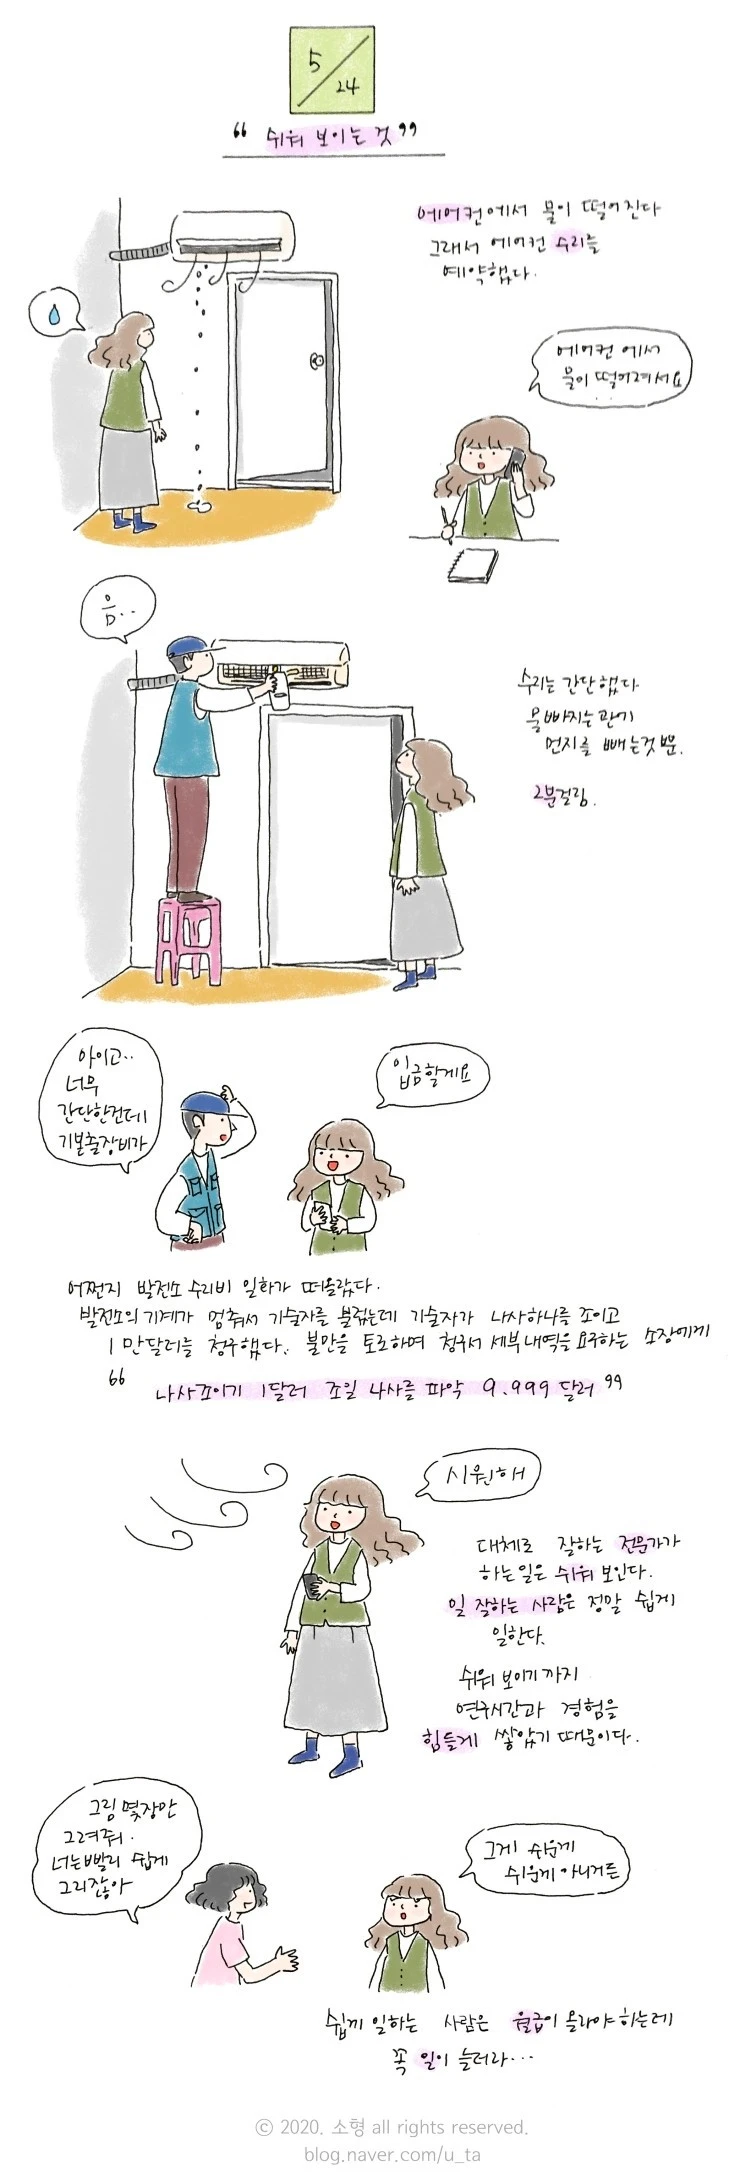 5/24
“ 쉬워 보이는 것 ”
에어컨에서 물이 떨어진다
그래서 에어컨 수리를
예약했다.
에어컨 에서
물이 떨어져서요
음..
수리는 간단했다
물 빠지는 관에
먼지를 빼는것 뿐.
2분걸림.
아이고..
너무
간단한건데
기본출장비가
입금할게요
어쩐지 발전소 수리비 일화가 떠올랐다.
발전소의 기계가 멈춰서 기술자를 불렀는데 기술자가 나사하나를 조이고
1만달러를 청구했다. 불만을 토로하며 청구서 세부내역을 요구하는 소장에게
“ 나사조이기 1달러 조일 나사를 파악 9.999 달러 ”
시원해
대체로 잘하는 전문가가
하는일은 쉬워 보인다.
일 잘하는 사람은 정말 쉽게
일한다.
쉬워 보이기 까지
연구시간과 경험을
힘들게 쌓았기 때문이다.
그림 몇장만
그려줘.
너는 빨리 쉽게
그리잖아
그게 쉬운게
쉬운게 아니거든
쉽게 일하는 사람은 월급이 올라야 하는데
꼭 일이 늘더라...
© 2020. 소형 all rights reserved.
blog.naver.com/u_ta